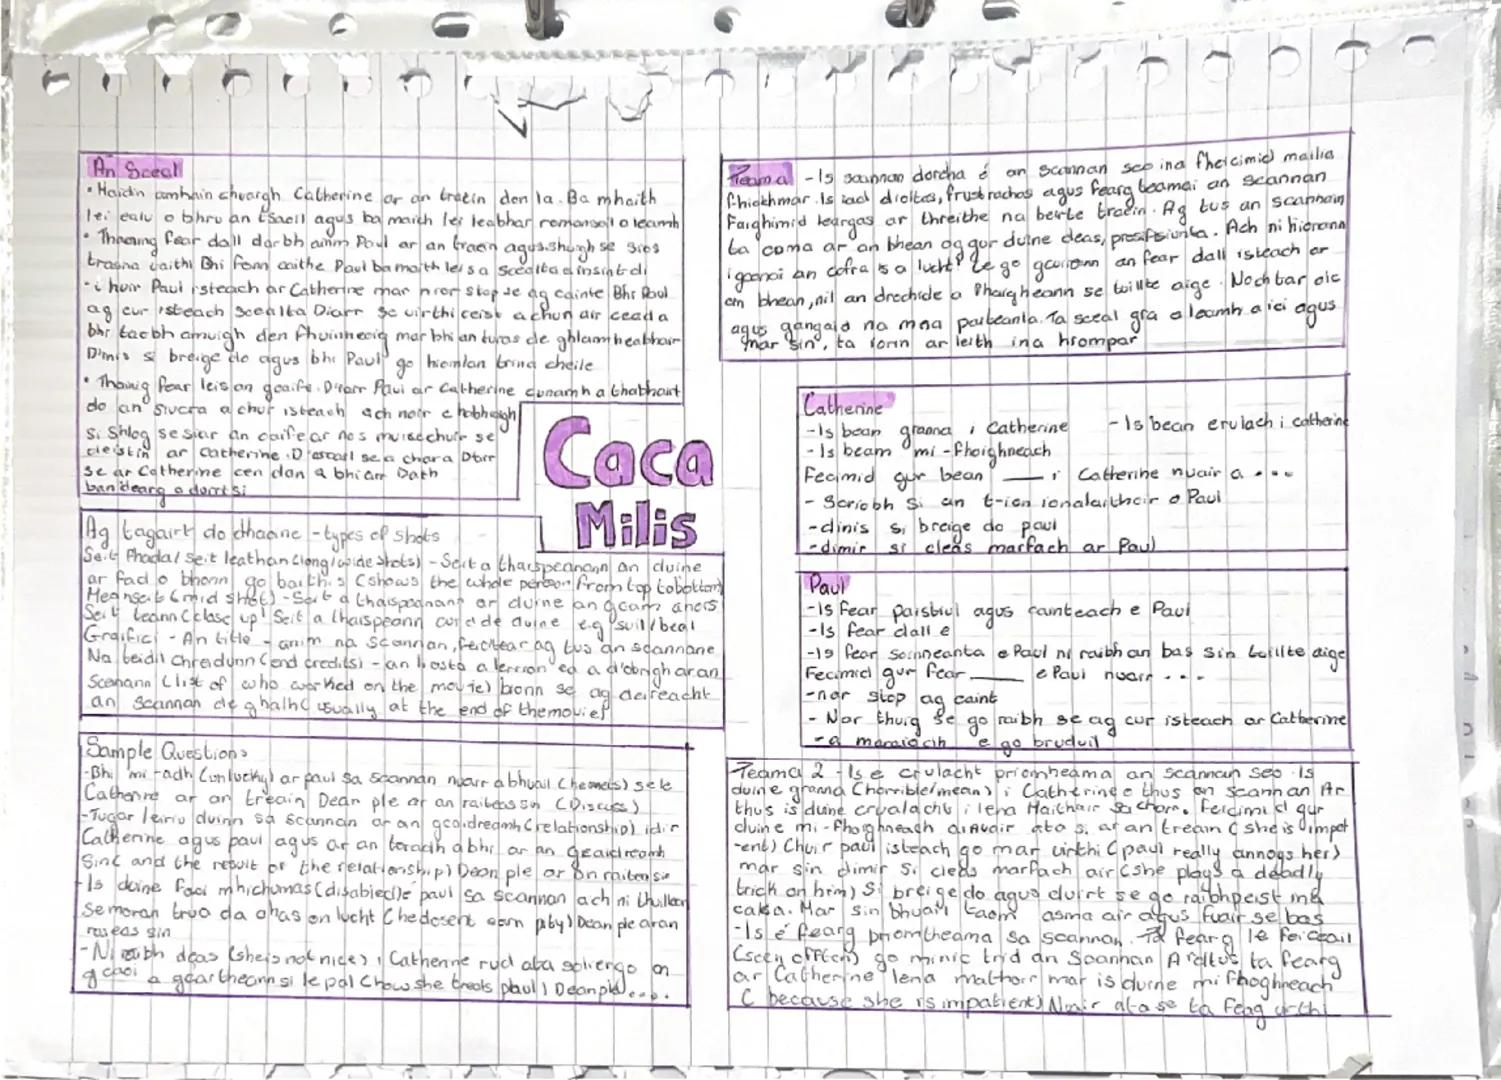 An Sceal
• Maidin amhain chuaigh Catherine ar an traein don la. Ba mhaith
lei ealu o bhru an tsaoil agus ba maith lei leabhar romansail a leamh
• Thainig fear dall darbh ainm Paul ar an traein agus shuigh se sios
trasna uaithi Bhi fonn cainte Paul ba maith leis a scealta a insint di
- chuir Paul isteach ar Catherine mar nior stop se ag cainte Bhi Paul
ag cur isteach scealta Diarr se uirthi ceist a chur air cead a
bhi taobh amuigh den fhuinneoig mar bhi an turas de ghlanmheabhair
Dinis si breige do agus bhi Paul go hiomlan trina cheile
• Thainig fear leis an gcaife. D'iarr Paul ar Catherine cunamh a thabhairt
do an siucra a chur isteach ach nior chabhaigh
si. Shlog se siar an caife ar nos muice chuir se
deistin ar Catherine. D'oscail se a chaca Diarr
se ar Catherine cen dan a bhi air Dath
bandearg a duirt si
Caca
Milis
Ag tagairt do dhaoine - types of shots
Seit Fhada/ Seit leathan (long/wide shots) - Seit a thaispeanann an duine
ar fad o bhonn go baithis (shows the whole person from top to bottom)
Meanseit (mid shot) - Seit a thaispeanann ar duine an gcam anois
Seit teann (close up) Seit a thaispeann cuid de duine e.g suil/beal
Graifici - An title - anim na scannan, feictear ag tus an scannane
Na teidil chreidiunn (end credits) - an liosta a leirion ed a d'obrigh ar an
Scannann (list of who worked on the movie) bionn se ag deireacht
an scannan de ghalhc usually at the end of the movies
Sample Questions
- Bhi mi-adh (unlucky) ar paul sa scannan nuair a bhuail (he meets) se le
Catherine ar an treain Dean ple ar an raiteas sin (Discuss)
- Tugar leiriu duinn sa scannan ar an gcaidreamh (relationship) idir
Catherine agus paul agus ar an toradh a bhi ar an gcaidreamh
sin (and the result of the relationship) Dean ple ar an raiteas sin
- Is duine faoi mhichumas (disabled) é paul sa scannan ach ni thuillean
se moran trua da bhas on lucht (he dosent earn pity) Dean ple ar an
raiteas sin
- Ni raibh deas (she is not nice) i Catherine rud ata soileir go on
gcaoi a gcaitheann si le pal (how she treats paul) Dean ple ....
Teama - Is scannan dorcha é an scannan seo ina fheicimid mailis
fhiokhmar. Is iad dioltas, frustrachas agus fearg teamai an scannan
Faighimid leargas ar threithe na beirte traein. Ag tus an scannain
ta coma ar an bhean og gur duine deas, proifisiunta. Ach ni hionann
i gconai an cofra is a lucht! Le go gcuireann an fear dall isteach ar
an bhean, nil an drochide a fhaigheann se tuillte aige. Nochtar olc
agus gangaid na mna paiteanla. Ta sceal gra a leamh aici agus
mar sin, ta fonn ar leith ina hiompar
Catherine
- Is bean granna i Catherine - Is bean crulach i catherine
- Is beam mi-fhoighneach
Fecimid gur bean ___ i Catherine nuair a ...
- Scriobh si an t-ion ionalaitheir o Paul
- dinis si breige do paul
- dimir si cleas marfach ar Paul
Paul
- Is fear paisbiul agus cainteach e Paul
- Is fear dall e
- Is fear soinneanta e Paul ni raibh an bas sin tuillte aige
Fecimid gur fear ___ e Paul nuair ...
- nor stop ag caint
- Nor thuig se go raibh se ag cur isteach ar Catherine
- a maraiocih e go bruduil
Teama 2 - Is e crulacht priomheama an scannan seo. Is
duine granna (horrible/mean) i Catherine o thus an scannan Ar
thus is duine crualacht i lena Maithair sa charr. Feicimid gur
duine mi-fhoighneach di Nuair ata si ar an treain (she is impat
-ent) Chuir paul isteach go mar uirthi (paul really annoys her)
mar sin dimir si cleas marfach air (she plays a deadly
trick on him) Si breige do agus duirt se go raibh peist ina
caca. Mar sin bhuail taom asma air agus fuair se bas
- Is é fearg priomtheama sa scannan. Ta fearg le feiceail
(seen often) go minic trid an Scannan Ar dtus ta fearg
ar Catherine lena mathair mar is duine mi fhoghneach
( because she is impatient) Nuair ata se ta feag urthi